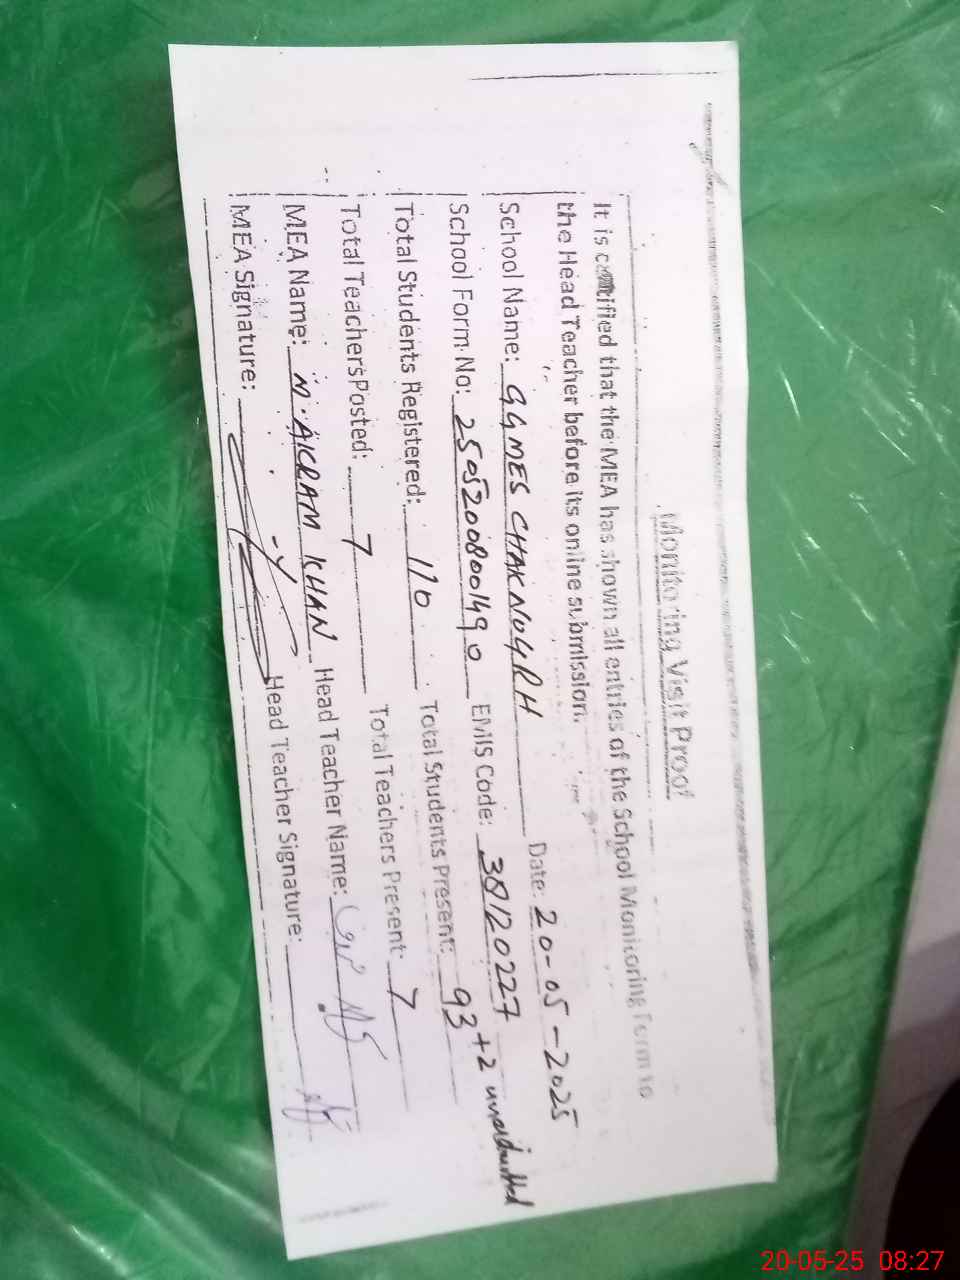 Monitoring Visit Proof
It is certified that the MEA has shown all entries of the School Monitoring Form to
the Head Teacher before its online submission.
School Name: GGMES CHAK NO 4RH Date: 20-05-2025
School Form No: 25052008001490 EMIS Code: 38120227
Total Students Registered: 110 Total Students Present: 93+2 unadmitted
Total Teachers Posted: 7 Total Teachers Present: 7
MEA Name: M.AKRAM KHAN Head Teacher Name:
MEA Signature: Head Teacher Signature:
20-05-25 08:27